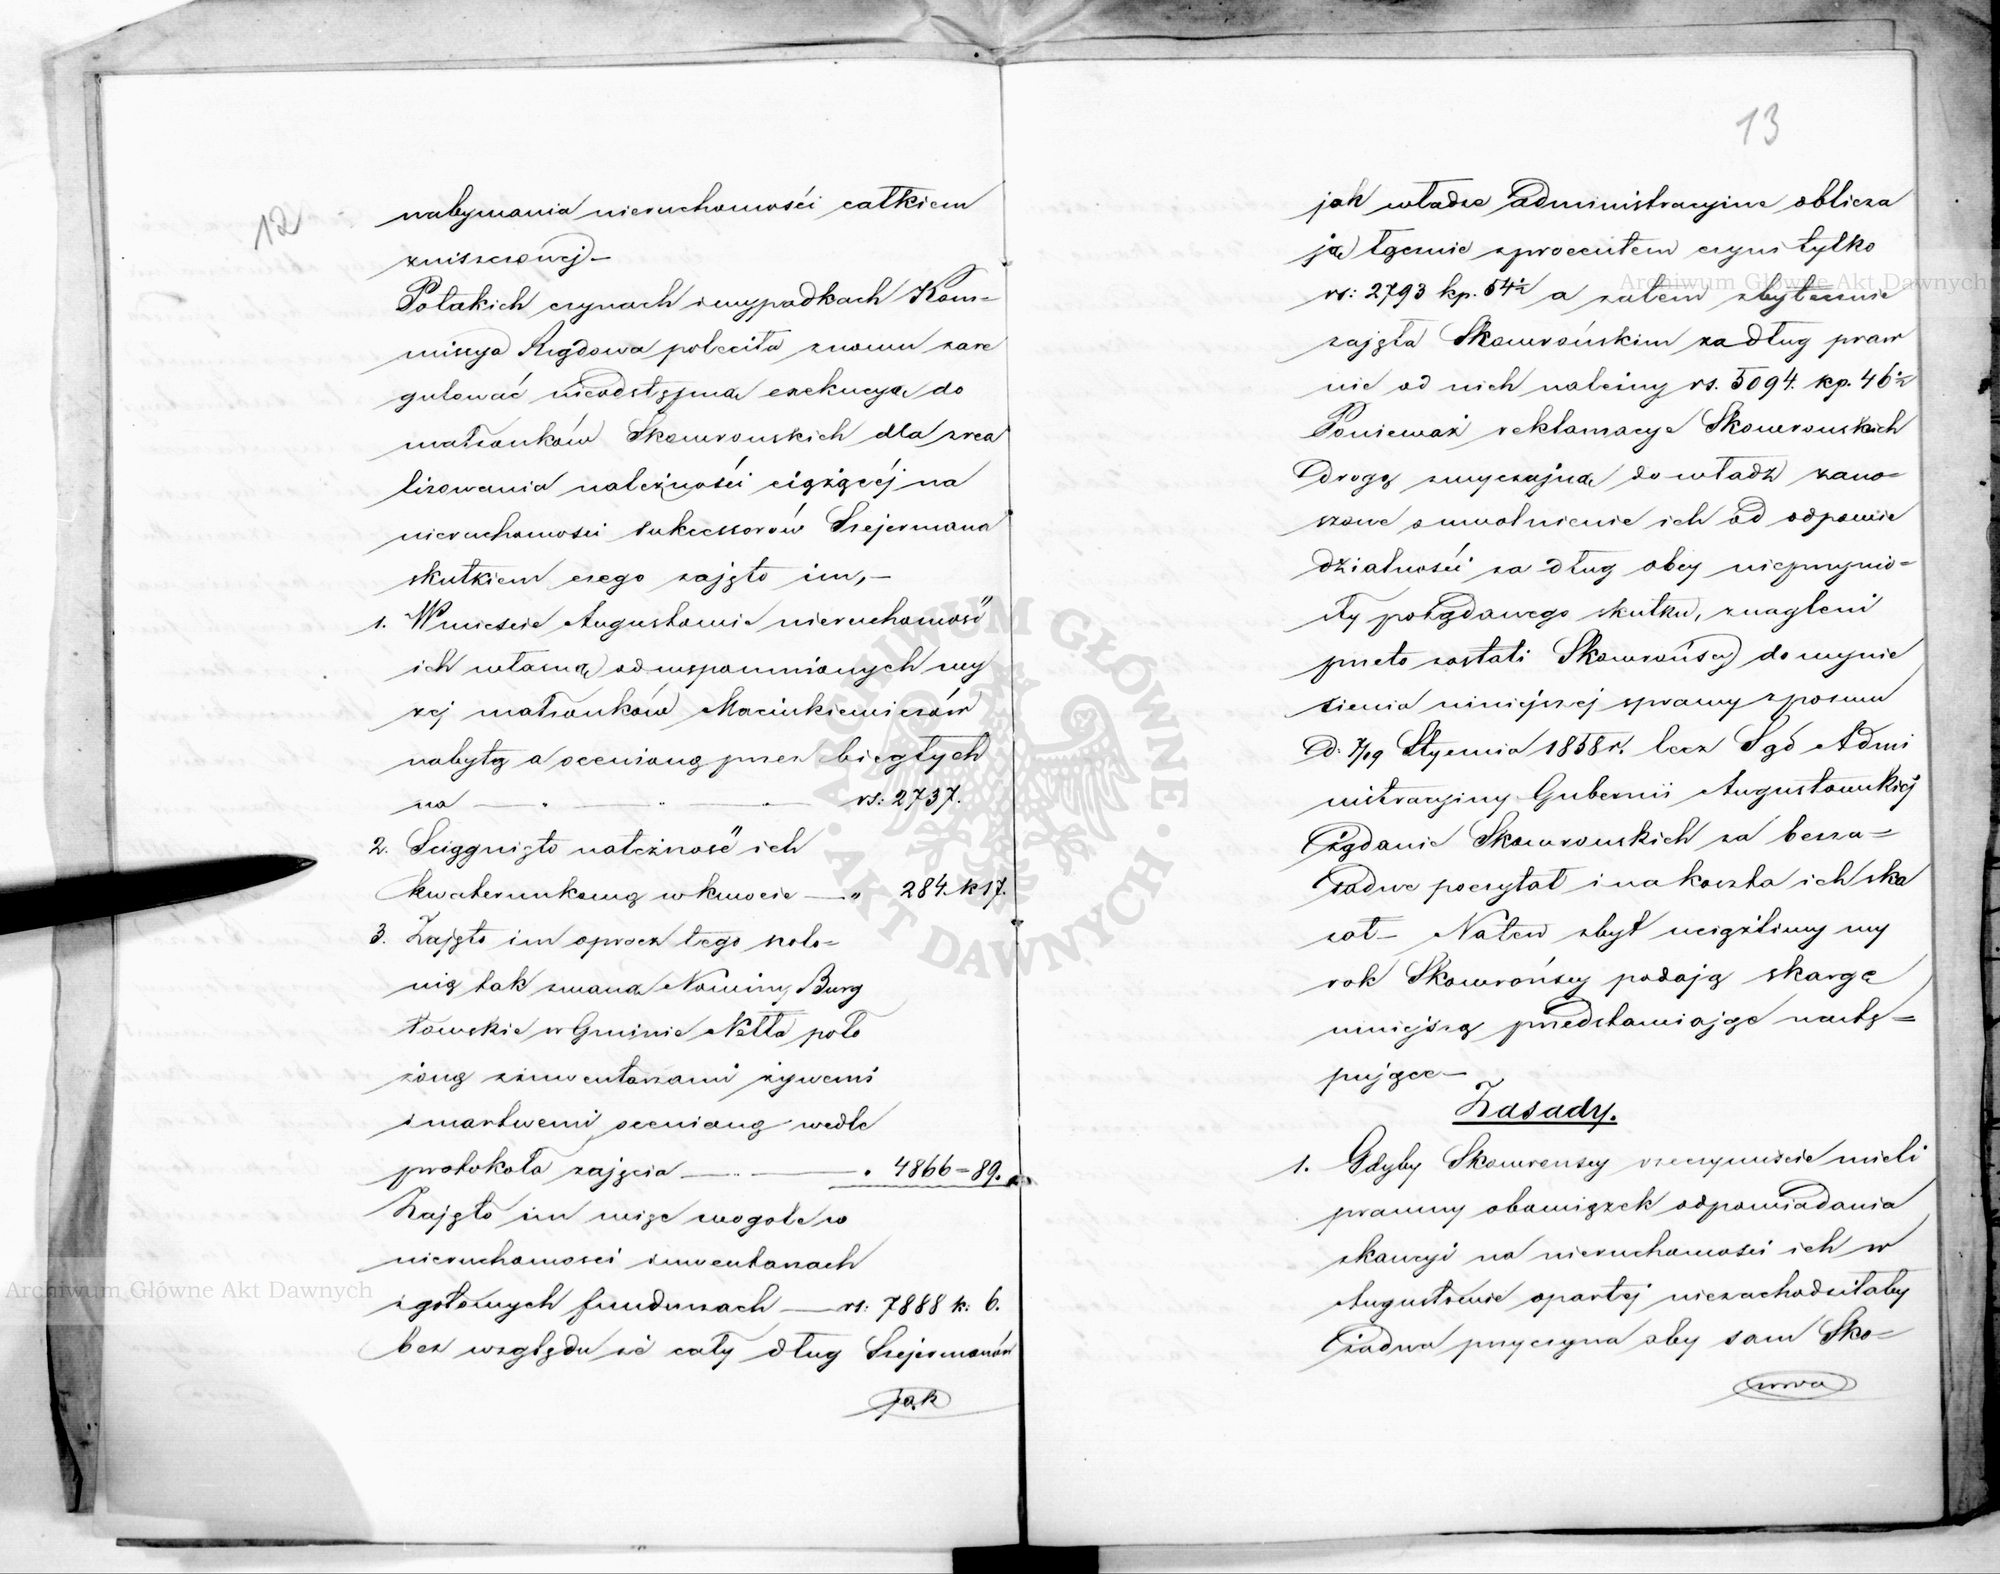 12
nabywania nieruchomości całkiem
zniszczonej –
Po takich czynach i wypadkach Kom=
missya Rządowa poleciła znowu zare
gulować nieodstępną exekucyą do
małżonków Skowronskich dla zrea
lizowania należności ciążącéj na
nieruchomości sukcessorów Szejermana
skutkiem czego zajęto im, –
1. W mieście Augustowie nieruchomość
ich własną od wspomnionych wy
żej małżonków Marcinkiewiczów
nabytą a ocenioną przez biegłych
na — rs: 2737.
2. Sciągnięto należność ich
kwaterunkową w kwocie — „ 284. k 17.
3. Zajęto im oprocz tego kolo=
nią tak zwaną Nowiny Barg
łowskie w Gminie Netta poło
żoną z inwentarzami żywemi
i martwemi ocenioną wedle
protokołu zajęcia — „ 4866 = 89.
Zajęto im więc wogole w
nieruchomości inwentarzach
i gotowych funduszach — rs: 7888 k: 6.
bez względu że cały dług Szejermanów
jak
13
jak władze administracyjne oblicza
ją łącznie z procentem czyni tylko
rs: 2793 kp. 54½ a zatem zbytecznie
zajęta Skowrońskim za dług praw
nie od nich należny rs. 5094. kp. 46½
Ponieważ reklamacye Skowronskich
drogą zwyczajną do władz zano=
szone o uwolnienie ich od odpowie
dzialności za dług obcy nieprzynio=
sły pożądanego skutku, znagleni
przeto zostali Skowrońscy do wynie
sienia niniejszej sprawy z pozwu
D: 7/19 Stycznia 1858 r. lecz Sąd Admi
nistracyjny Gubernii Augustowskiej
żądanie Skowronskich za bezza=
sadne poczytał i na koszta ich ska
zał – Na ten zbyt uciążliwy wy
rok Skowrońscy podają skargę
niniejszą przedstawiając nastę=
pujące –
Zasady.
1. Gdyby Skowronscy rzeczywiście mieli
prawny obowiązek odpowiadania
z kaucyi na nieruchomości ich w
Augustowie opartej niezachodziłaby
żadna przyczyna aby sam Sko=
wro
Archiwum Główne Akt Dawnych
Archiwum Główne Akt Dawnych
ARCHIWUM GŁÓWNE · AKT DAWNYCH ·